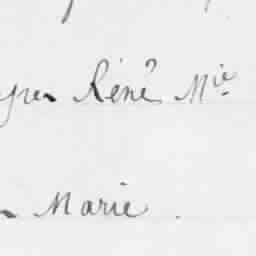 René Mie
Marie